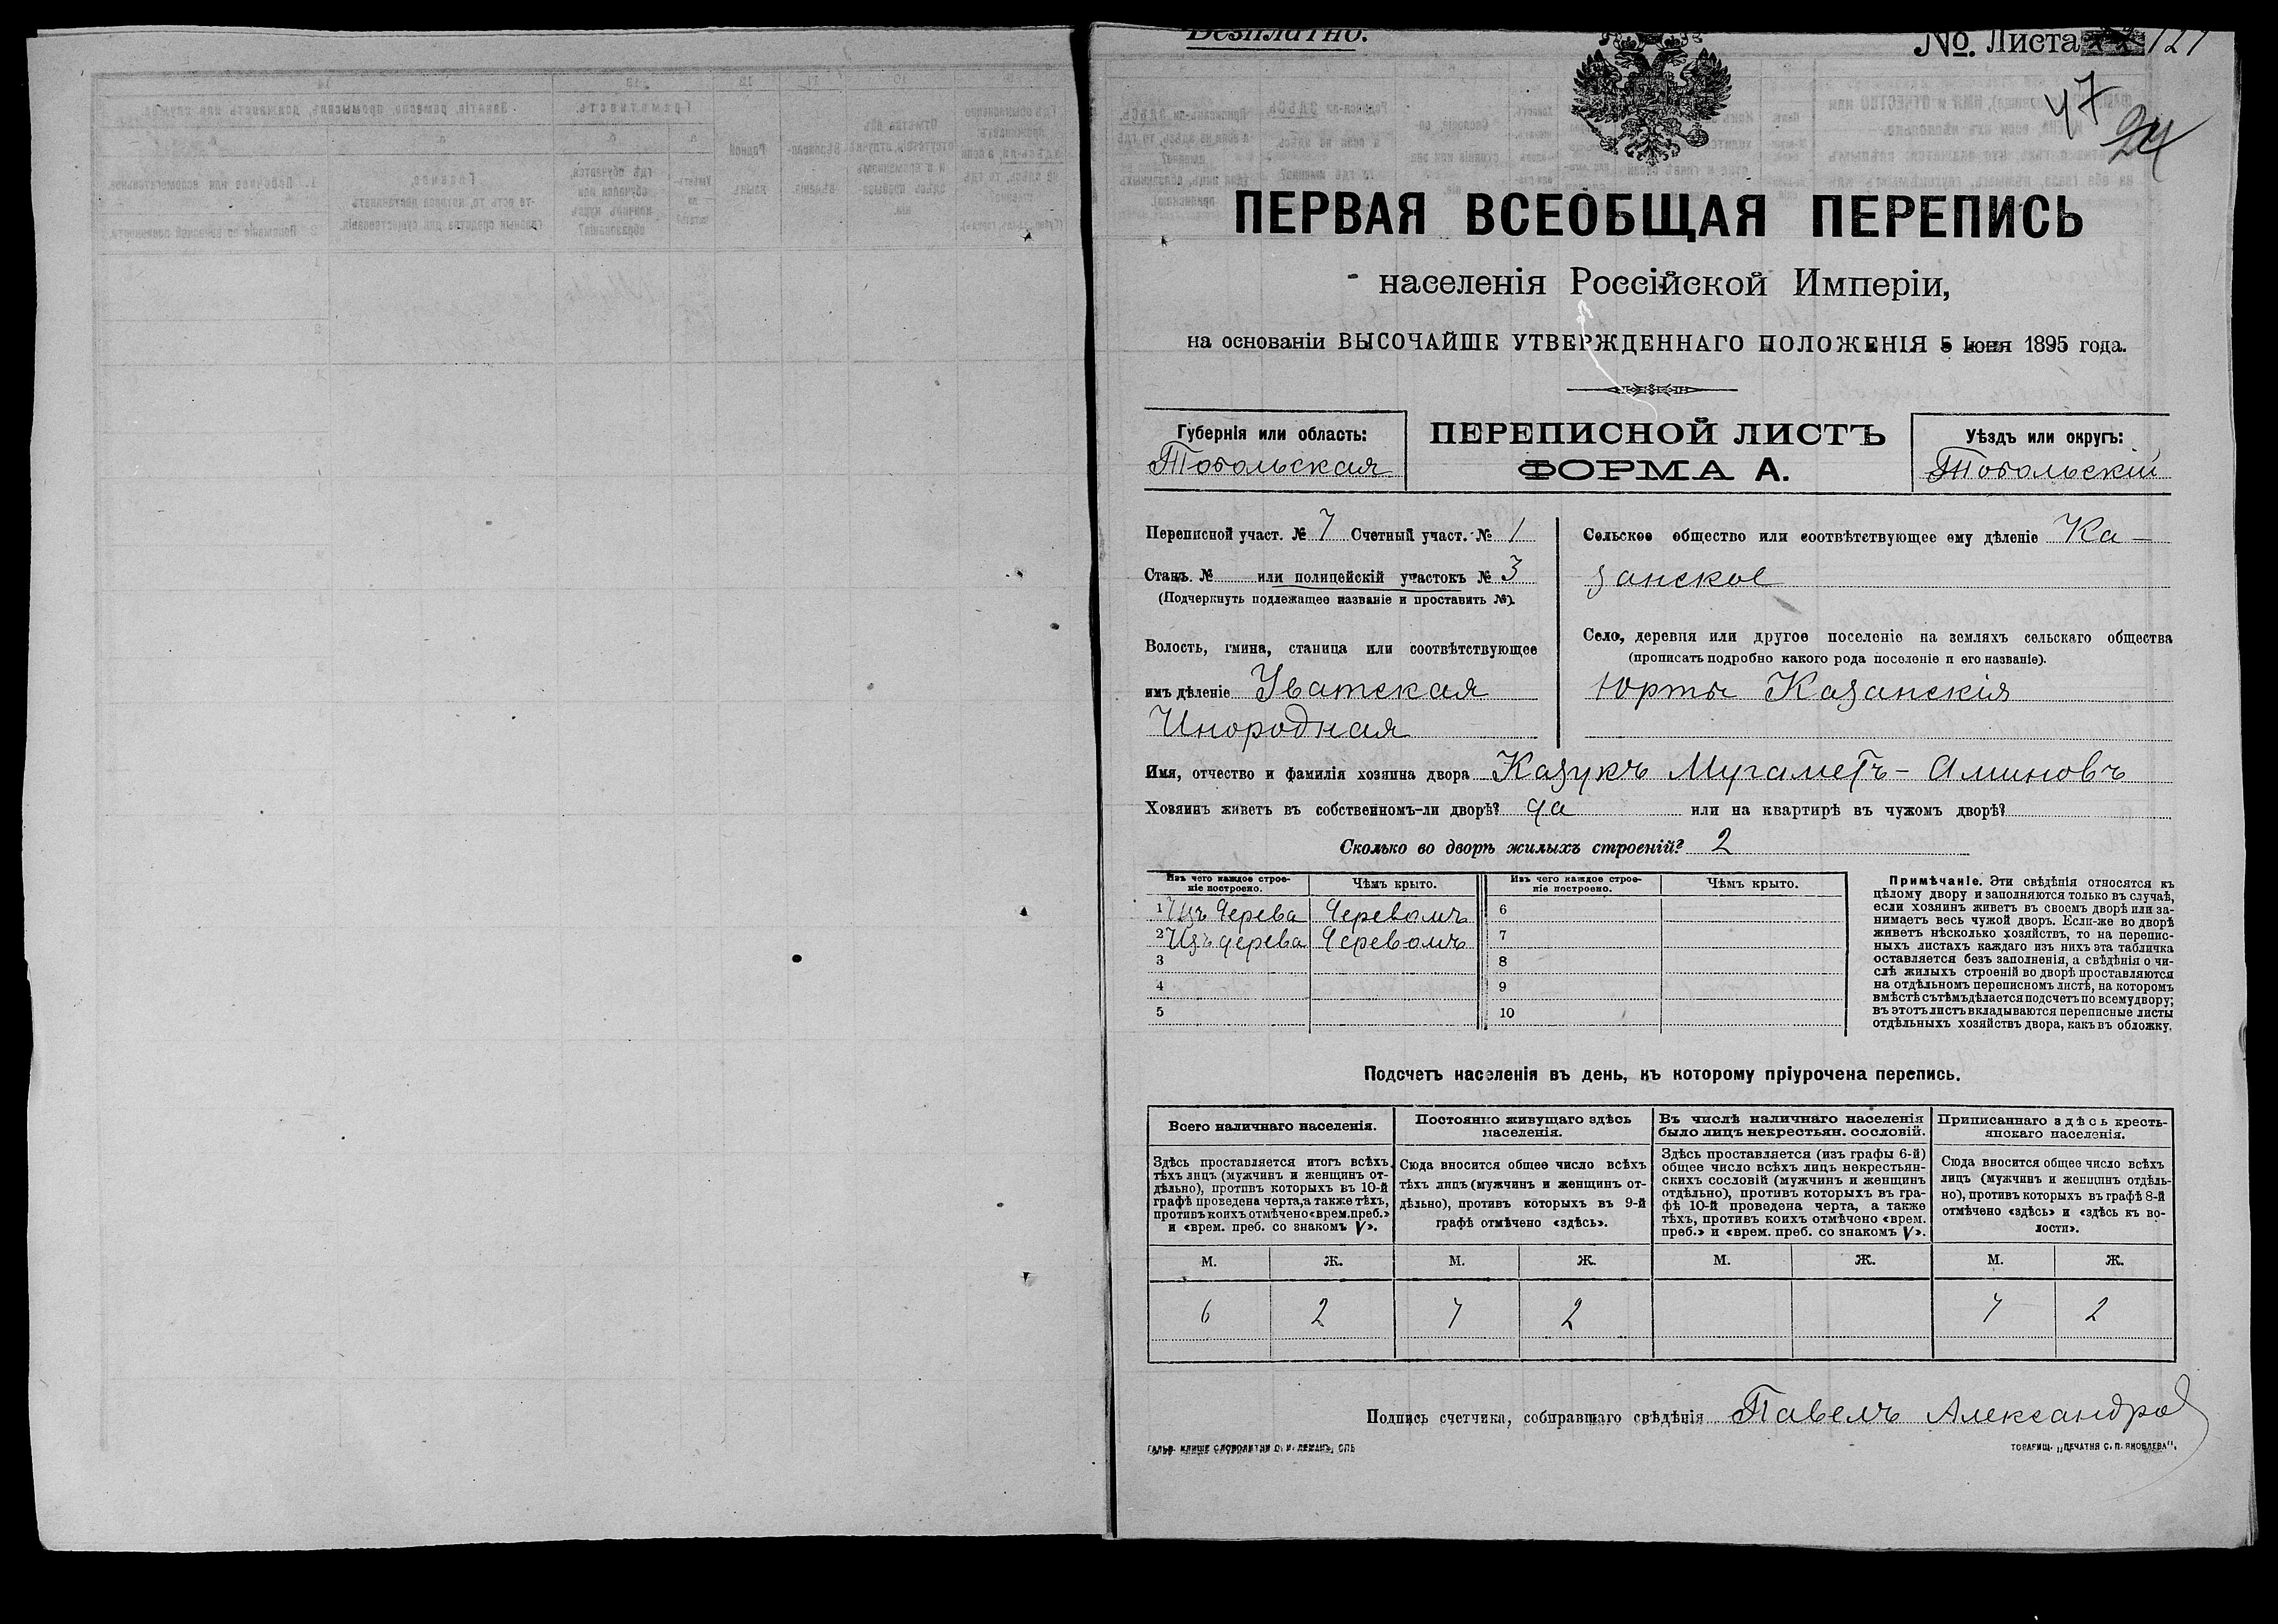 Безплатно.
No. Листа 121
47
24
ПЕРВАЯ ВСЕОБЩАЯ ПЕРЕПИСЬ
населенія Россійской Имперіи,
на основаніи ВЫСОЧАЙШЕ УТВЕРЖДЕННАГО ПОЛОЖЕНІЯ 5 Іюня 1895 года.
Губернія или область:
Тобольская
ПЕРЕПИСНОЙ ЛИСТЪ
ФОРМА А.
Уѣздъ или округъ:
Тобольскій
Переписной участ. № 7 Счетный участ. № 1
Станъ. № или полицейскій участокъ № 3
(Подчеркнуть подлежащее названіе и проставить №).
Волость, гмина, станица или соотвѣтствующее
имъ дѣленіе Уватская
Инородная
Сельское общество или соотвѣтствующее ему дѣленіе Ка-
занское
Село, деревня или другое поселеніе на земляхъ сельскаго общества
(прописать подробно какого рода поселеніе и его названіе).
Юрты Казанскія
Имя, отчество и фамилія хозяина двора Казукъ Мугаметъ-Аминовъ
Хозяинъ живетъ въ собственномъ-ли дворѣ? да или на квартирѣ въ чужомъ дворѣ?
Сколько во дворѣ жилыхъ строеній? 2
Изъ чего каждое строе-
ніе построено.
Чѣмъ крыто.
Изъ чего каждое строе-
ніе построено.
Чѣмъ крыто.
1 Изъ дерева Деревомъ 6
2 Изъ дерева Деревомъ 7
3 8
4 9
5 10
Примѣчаніе. Эти свѣдѣнія относятся къ
цѣлому двору и заполняются только въ случаѣ,
если хозяинъ живетъ въ своемъ дворѣ или за-
нимаетъ весь чужой дворъ. Если-же во дворѣ
живетъ нѣсколько хозяйствъ, то на перепис-
ныхъ листахъ каждаго изъ нихъ эта табличка
оставляется безъ заполненія, а свѣдѣнія о чи-
слѣ жилыхъ строеній во дворѣ проставляются
на отдѣльномъ переписномъ листѣ, на которомъ
вмѣстѣ съ тѣмъ дѣлается подсчетъ по всему двору;
въ этотъ листъ вкладываются переписные листы
отдѣльныхъ хозяйствъ двора, какъ въ обложку.
Подсчетъ населенія въ день, къ которому пріурочена перепись.
Всего наличнаго населенія.
Здѣсь проставляется итогъ всѣхъ
тѣхъ лицъ (мужчинъ и женщинъ от-
дѣльно), противъ которыхъ въ 10-й
графѣ проведена черта, а также тѣхъ,
противъ коихъ отмѣчено «врем. преб.»
и «врем. преб. со знакомъ V».
Постоянно живущаго здѣсь
населенія.
Сюда вносится общее число всѣхъ
тѣхъ лицъ (мужчинъ и женщинъ от-
дѣльно), противъ которыхъ въ 9-й
графѣ отмѣчено «здѣсь».
Въ числѣ наличнаго населенія
было лицъ некрестьян. сословій.
Здѣсь проставляется (изъ графы 6-й)
общее число всѣхъ лицъ некрестьян-
скихъ сословій (мужчинъ и женщинъ
отдѣльно), противъ которыхъ въ гра-
фѣ 10-й проведена черта, а также
тѣхъ, противъ коихъ отмѣчено «врем.
преб.» и «врем. преб. со знакомъ V».
Приписаннаго здѣсь кресть-
янскаго населенія.
Сюда вносится общее число всѣхъ
лицъ (мужчинъ и женщинъ отдѣль-
но), противъ которыхъ въ графѣ 8-й
отмѣчено «здѣсь» и «здѣсь къ во-
лости».
М. Ж. М. Ж. М. Ж. М. Ж.
6 2 7 2 7 2
Подпись счетчика, собиравшаго свѣдѣнія Павелъ Александров
ГАЛЬВ. КЛИШЕ СЛОВОЛИТНИ О. И. ЛЕМАНЪ, СПБ
ТОВАРИЩ. „ПЕЧАТНЯ С. П. ЯКОВЛЕВА".